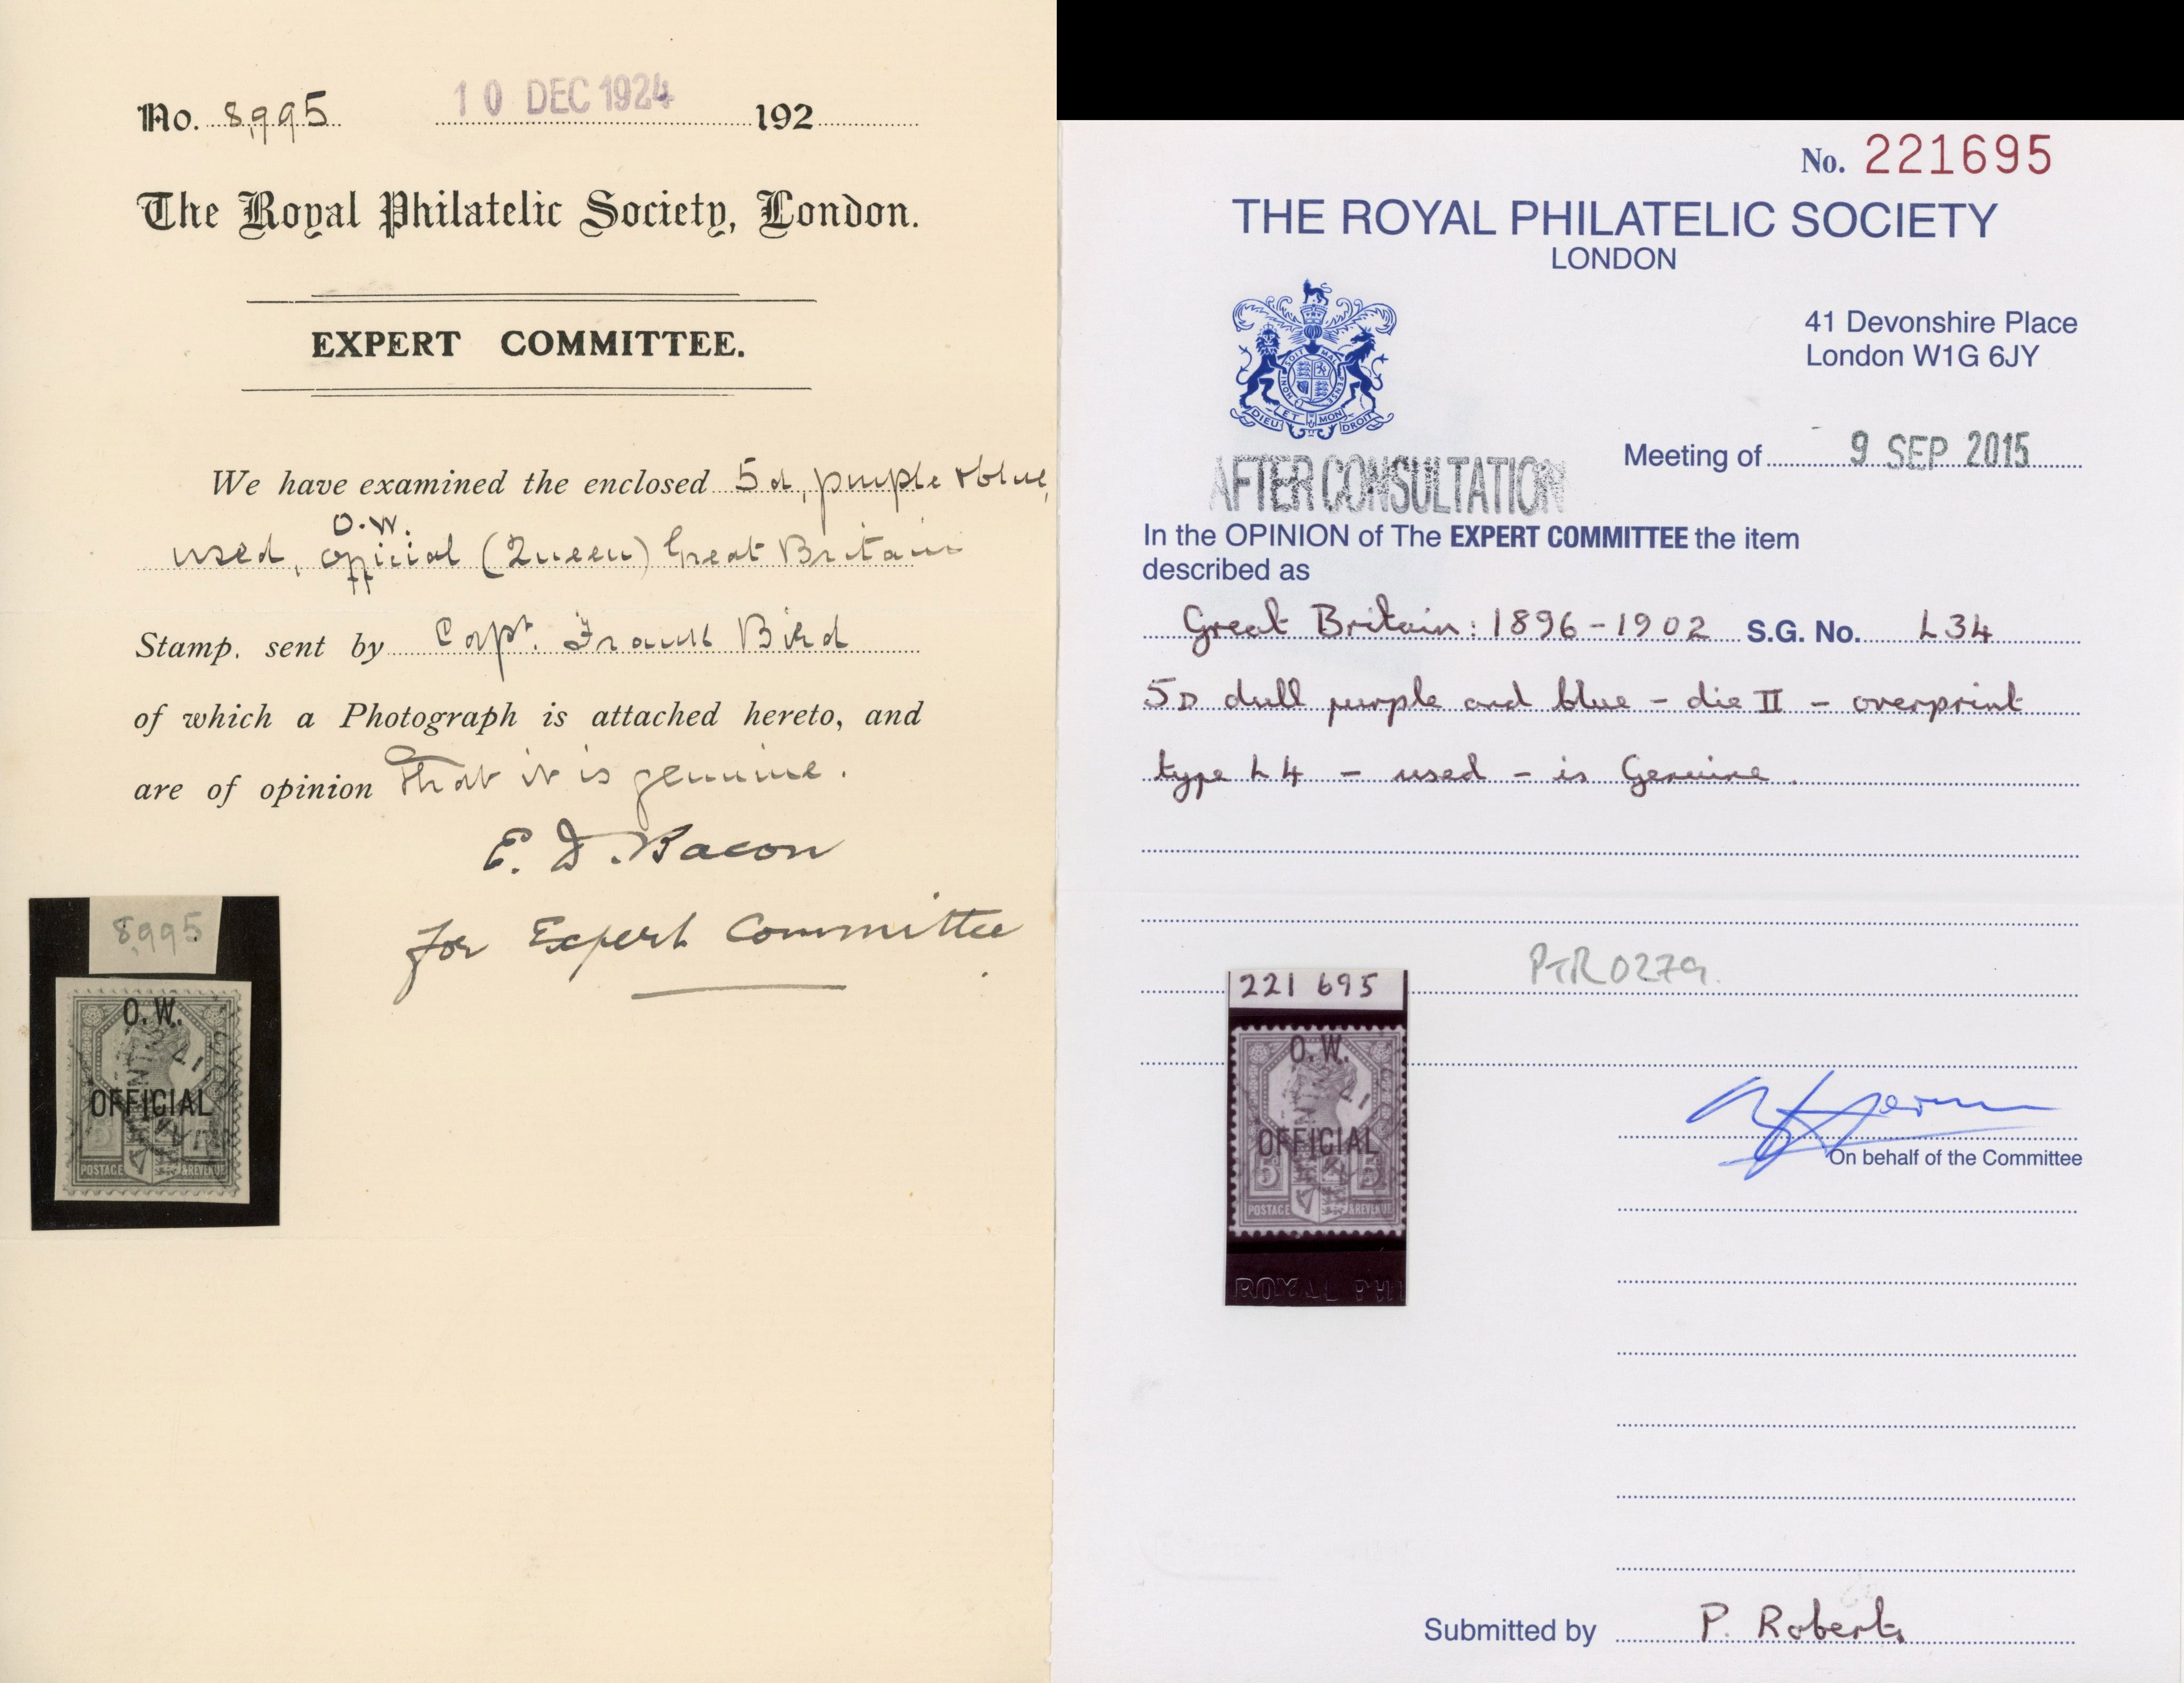 No. 8,995 10 DEC 1924 192
The Royal Philatelic Society, London.
EXPERT COMMITTEE.
We have examined the enclosed 5d, purple & blue,
O.W.
used, official (Queen) Great Britain
Stamp. sent by Capt. Frank Bird
of which a Photograph is attached hereto, and
are of opinion that it is genuine.
E. D. Bacon
for Expert Committee
8,995
O.W.
OFFICIAL
POSTAGE & REVENUE
No. 221695
THE ROYAL PHILATELIC SOCIETY
LONDON
41 Devonshire Place
London W1G 6JY
DIEU ET MON DROIT
Meeting of 9 SEP 2015
AFTER CONSULTATION
In the OPINION of The EXPERT COMMITTEE the item
described as
Great Britain: 1896-1902 S.G. No. L34
5D dull purple and blue - die II - overprint
type L4 - used - is Genuine.
PTR0279.
221 695
O.W.
OFFICIAL
5d 5d
POSTAGE & REVENUE
ROYAL PHI
On behalf of the Committee
Submitted by P. Roberts